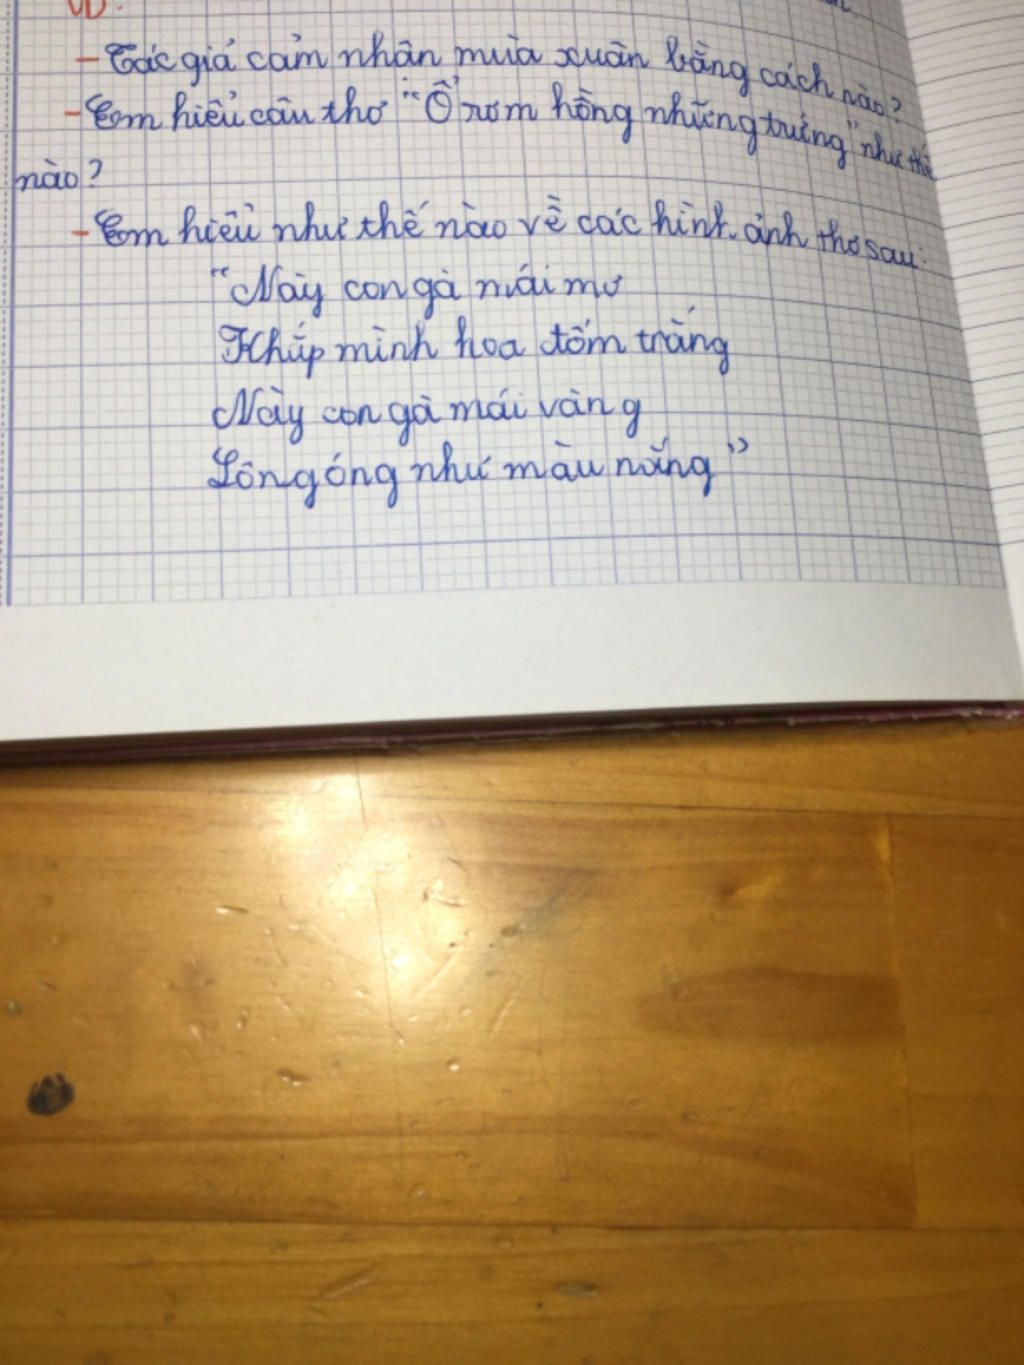 VD:
- Tác giả cảm nhận mùa xuân bằng cách nào?
- Em hiểu câu thơ "Ổ rơm hồng những trứng" như thế
nào?
- Em hiểu như thế nào về các hình ảnh thơ sau:
"Này con gà mái mơ
Khắp mình hoa đốm trắng
Này con gà mái vàng
Lông óng như màu nắng"